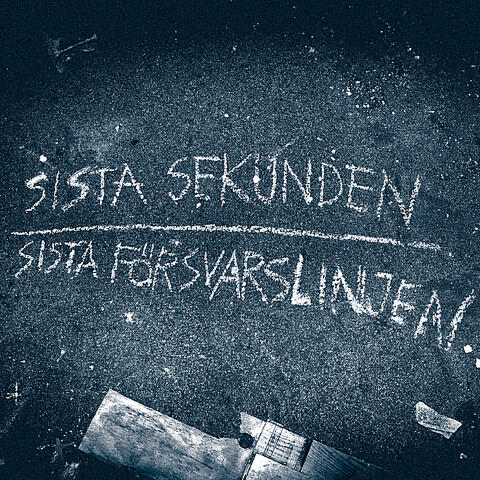 SISTA SEKUNDEN
SISTA FÖRSVARSLINJEN